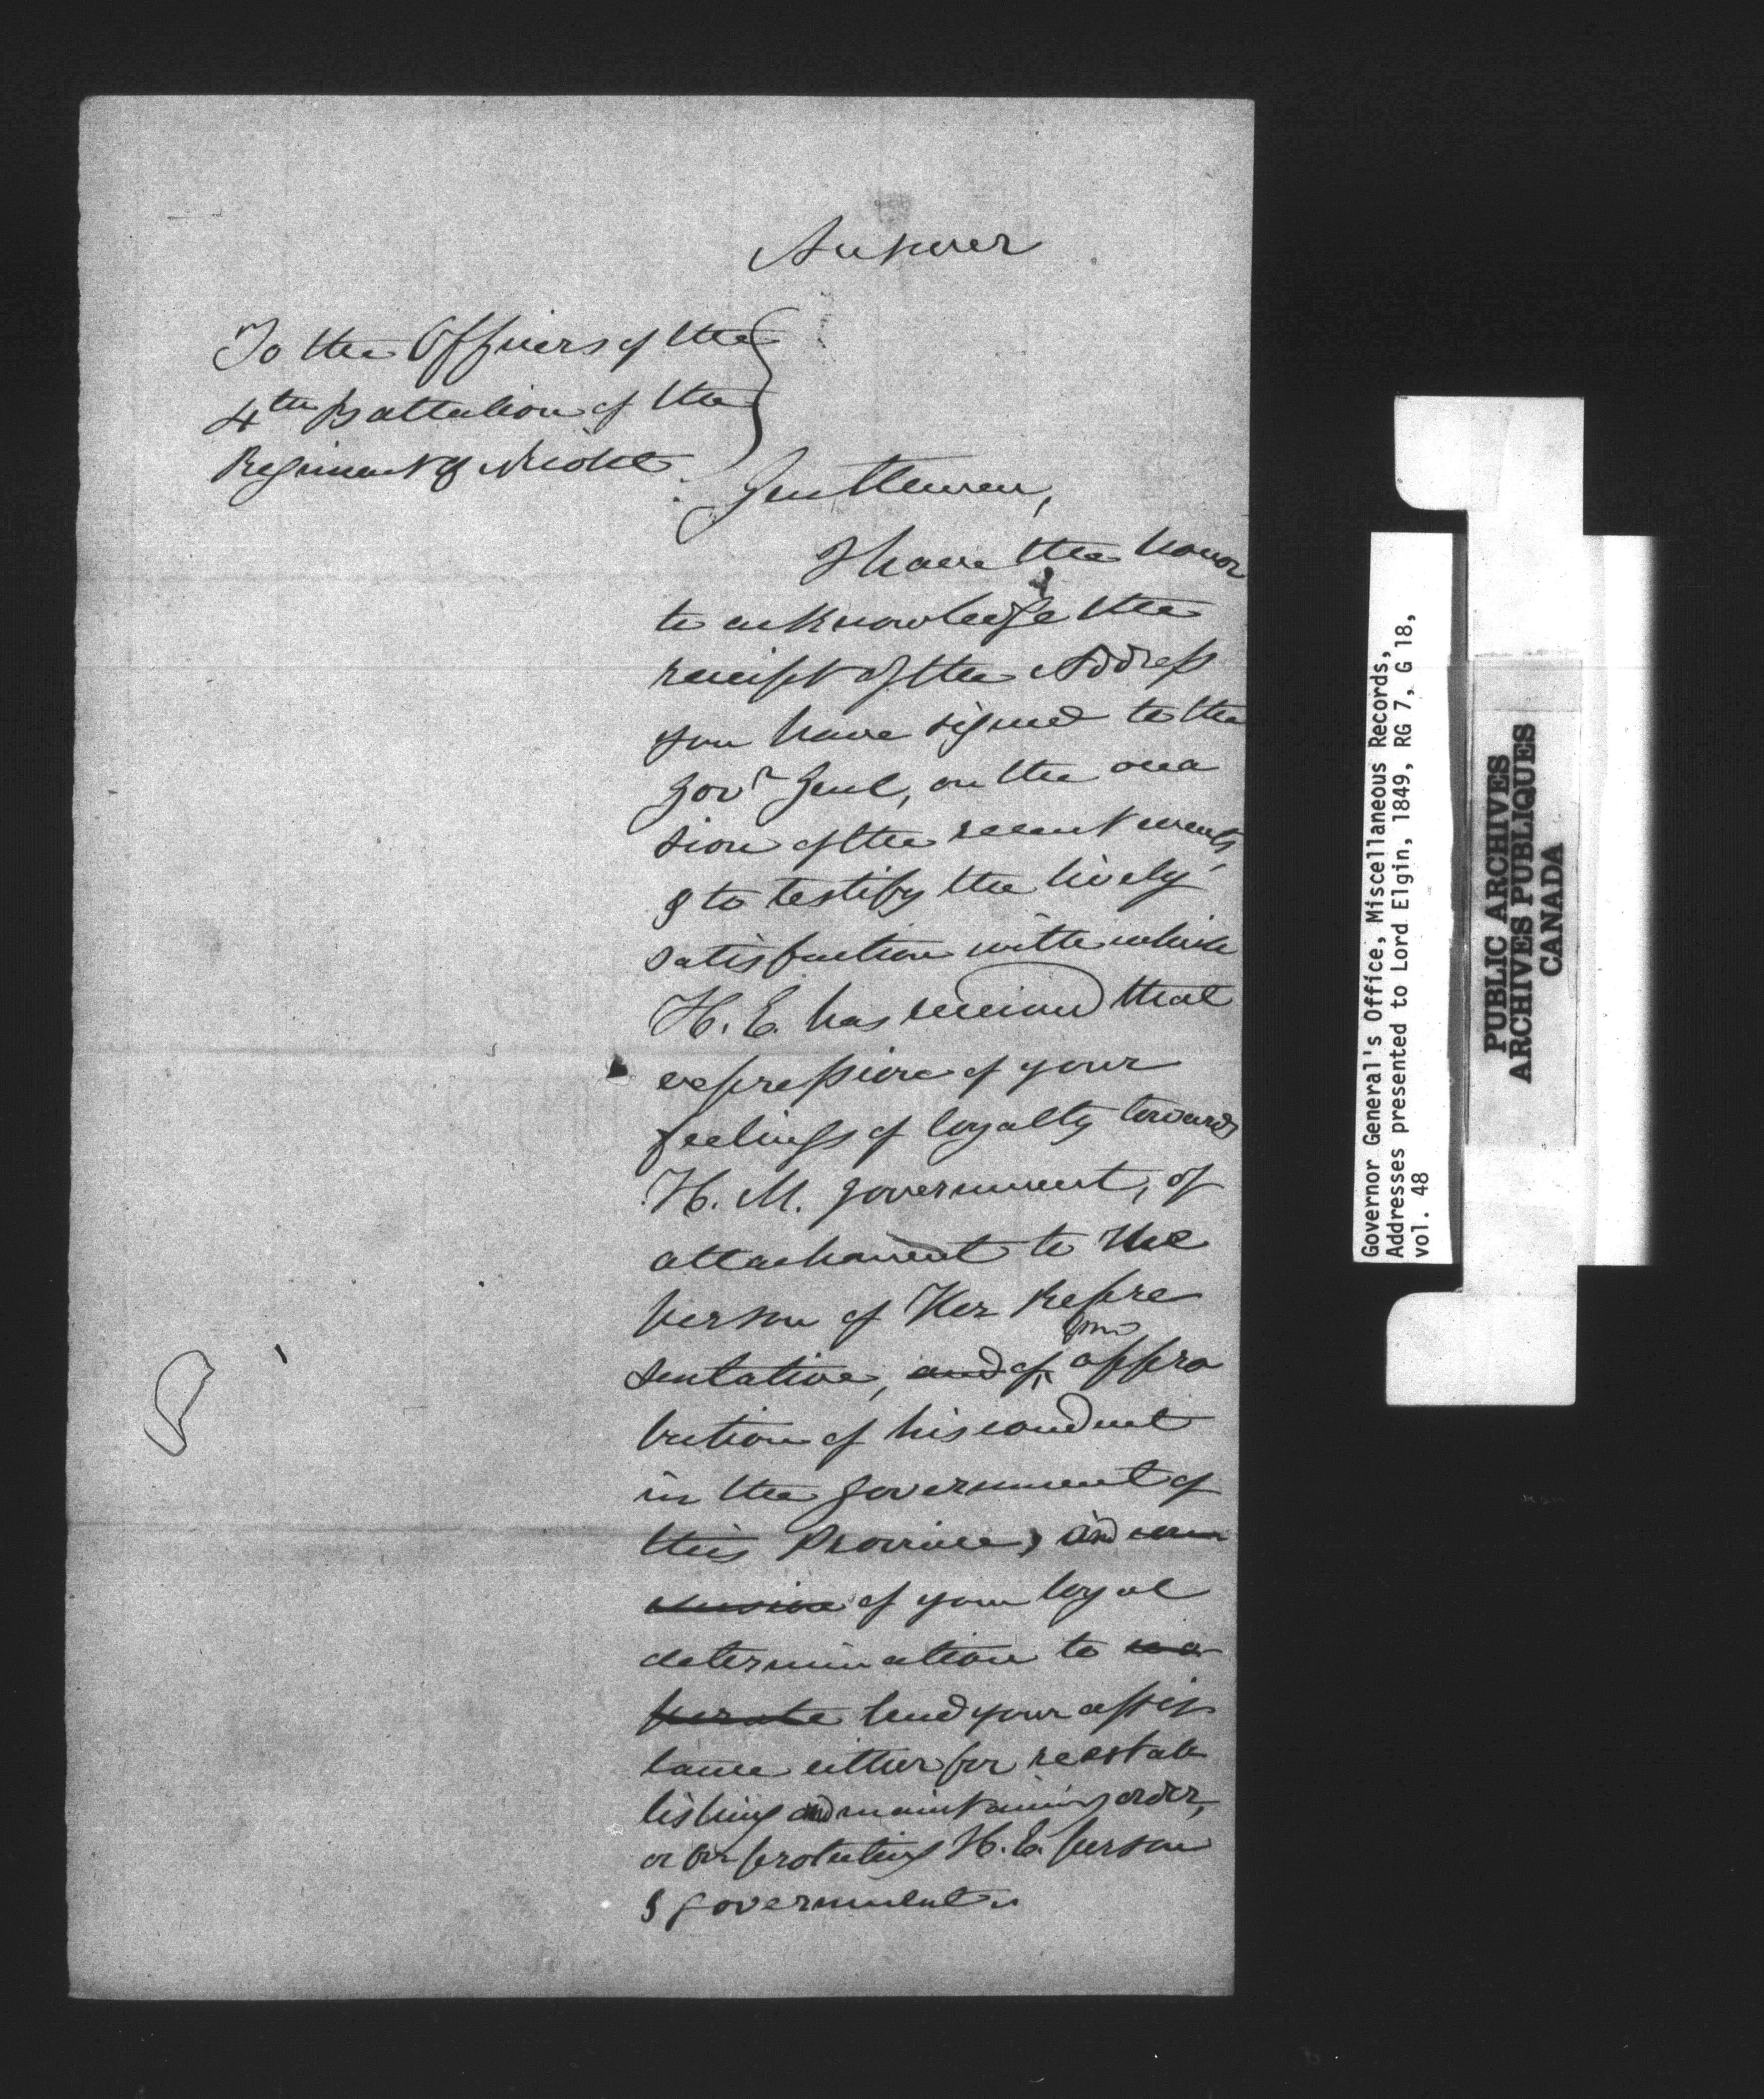 Answer
To the Officers of the
4th Battalion of the
Regiment of
Gentlemen,
I have the honor
to acknowledge the
receipt of the Address
you have signed to the
Govr Genl, on the occa
sion of the recent events,
& to testify the lively
satisfaction with which
H. E. has received that
expression of your
feelings of loyalty towards
H. M. government, of
attachment to the
person of Her Repre
sentative, and of appro
bation of his conduct
in the government of
this Province, and
of your loyal
determination to coo
perate lend your assis
tance either for reestab
lishing and maintaining order,
or for protecting H. E. person
& government.
Governor General's Office, Miscellaneous Records,
Addresses presented to Lord Elgin, 1849, RG 7, G 18,
vol. 48
PUBLIC ARCHIVES
ARCHIVES PUBLIQUES
CANADA